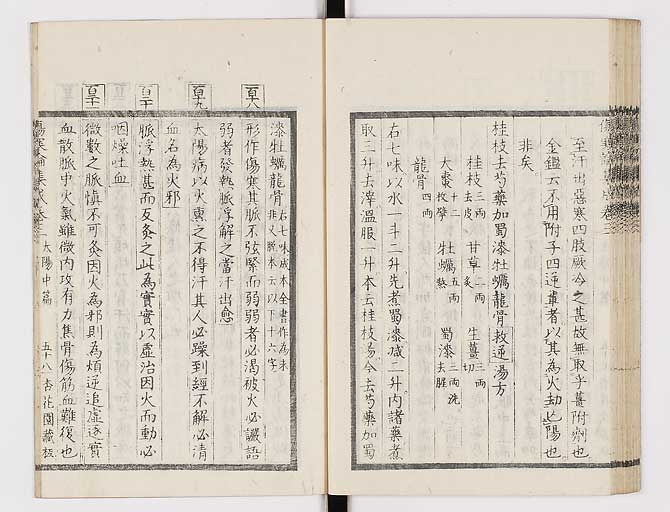 至汗出惡寒四肢厥令之甚故無取乎薑附劑也
金鑑云不用附子四逆輩者以其為火劫亡陽也
非矣
桂枝去芍藥加蜀漆牡蠣龍骨救逆湯方
桂枝 三兩去皮 甘草 二兩炙 生薑 三兩切
大棗 十二枚擘 牡蠣 五兩熬 蜀漆 三兩洗去腥
龍骨 四兩
右七味以水一斗二升先煮蜀漆減二升内諸藥煮
取三升去滓溫服一升本云桂枝湯今去芍藥加蜀
漆牡蠣龍骨 右七味成本全書作為末非又脫本云以下十六字
百十八
形作傷寒其脈不弦緊而弱弱者必渴被火必讝語
弱者發熱脈浮解之當汗出愈
百十九
太陽病以火熏之不得汗其人必躁到經不解必清
血名為火邪
百二十
脈浮熱甚而反灸之此為實實以虛治因火而動必
咽燥吐血
百二十一
微數之脈慎不可灸因火為邪則為煩逆追虛逐實
血散脈中火氣雖微内攻有力焦骨傷筋血難復也
傷寒論集成卷三 太陽中篇 五十八 杏花園藏板